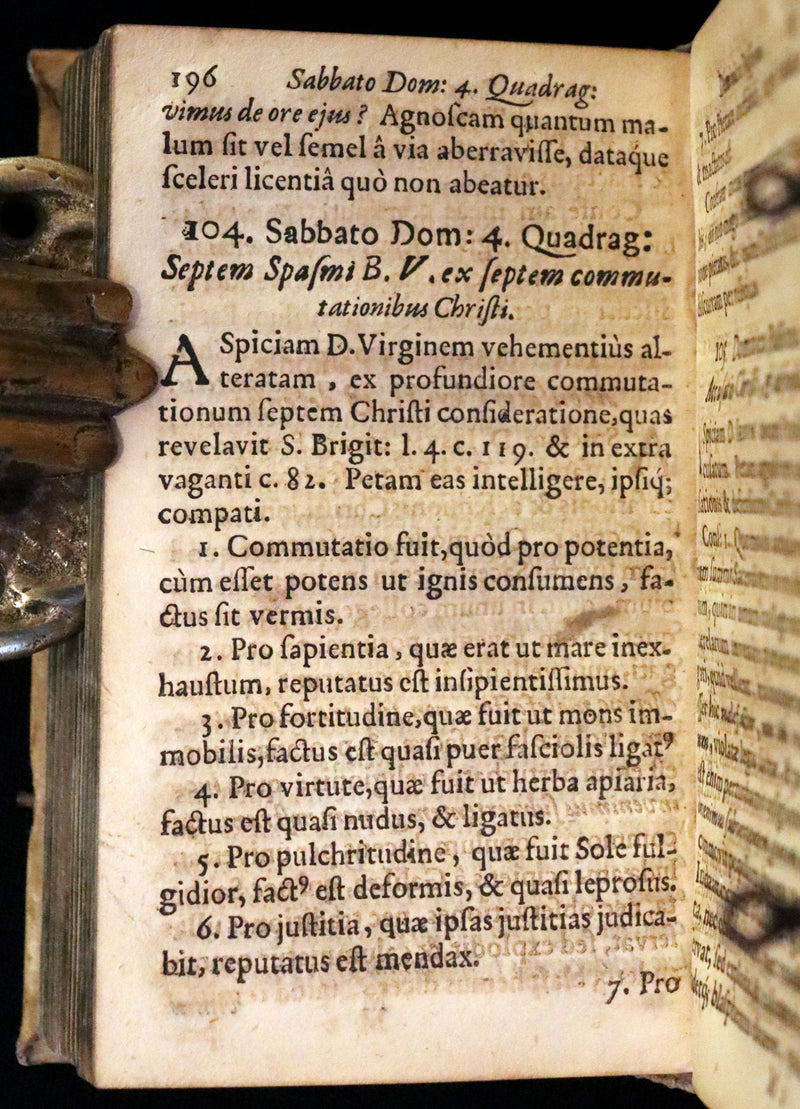 196 Sabbato Dom: 4. Quadrag:
vimus de ore ejus? Agnoſcam quantum ma-
lum ſit vel ſemel â via aberraviſſe, dataq́ue
ſceleri licentiâ quò non abeatur.
104. Sabbato Dom: 4. Quadrag:
Septem Spaſmi B. V. ex ſeptem commu-
tationibus Chriſti.
ASpiciam D. Virginem vehementiùs al-
teratam, ex profundiore commuta-
tionum ſeptem Chriſti conſideratione, quas
revelavit S. Brigit: l. 4. c. 119. & in extra
vaganti c. 82. Petam eas intelligere, ipſiq́;
compati.
1. Commutatio fuit, quòd pro potentia,
cùm eſſet potens ut ignis conſumens, fa-
ctus ſit vermis.
2. Pro ſapientia, quæ erat ut mare inex-
hauſtum, reputatus eſt inſipientiſſimus.
3. Pro fortitudine, quæ fuit ut mons im-
mobilis, factus eſt quaſi puer faſciolis ligatꝰ
4. Pro virtute, quæ fuit ut herba apiaria,
factus eſt quaſi nudus, & ligatus.
5. Pro pulchritudine, quæ fuit Sole ful-
gidior, factꝰ eſt deformis, & quaſi leproſus.
6. Pro juſtitia, quæ ipſas juſtitias judica-
bit, reputatus eſt mendax.
7. Pro